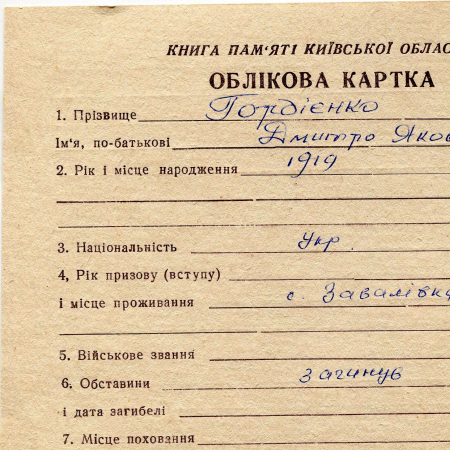 КНИГА ПАМ'ЯТІ КИЇВСЬКОЇ ОБЛАС
ОБЛІКОВА КАРТКА
1. Прізвище Гордієнко
Ім'я, по-батькові Дмитро Яков
2. Рік і місце народження 1919
3. Національність Укр.
4, Рік призову (вступу)
і місце проживання с. Завалівка
5. Військове звання
6. Обставини загинув
і дата загибелі
7. Місце поховання